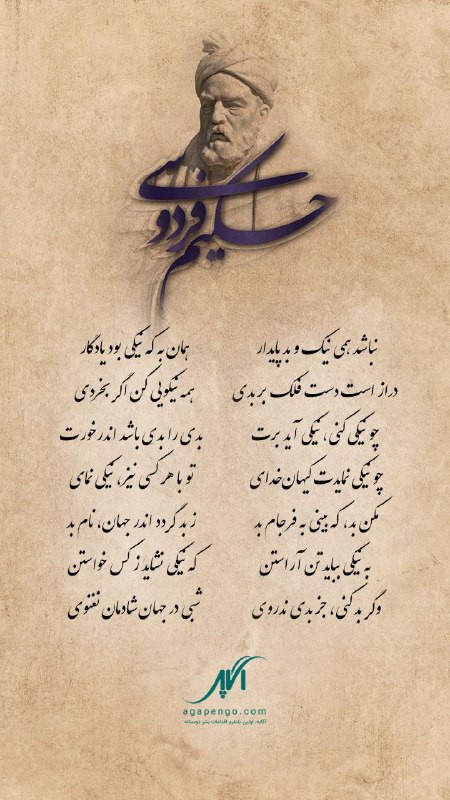 حکیم فردوسی
نباشد همی نیک و بد پایدار همان به که نیکی بود یادگار
دراز است دست فلک بر بدی همه نیکویی کن اگر بخردی
چو نیکی کنی، نیکی آید برت بدی را بدی باشد اندر خورت
چو نیکی نمایدت کیهان خدای تو با هر کسی نیز، نیکی نمای
مکن بد، که بینی به فرجام بد ز بد گردد اندر جهان، نام بد
به نیکی بباید تن آراستن که نیکی نشاید ز کس خواستن
وگر بد کنی، جز بدی ندروی شبی در جهان شادمان نغنوی
آگاپه
agapengo.com
آگاپه، اولین پلتفرم اقدامات بشر دوستانه